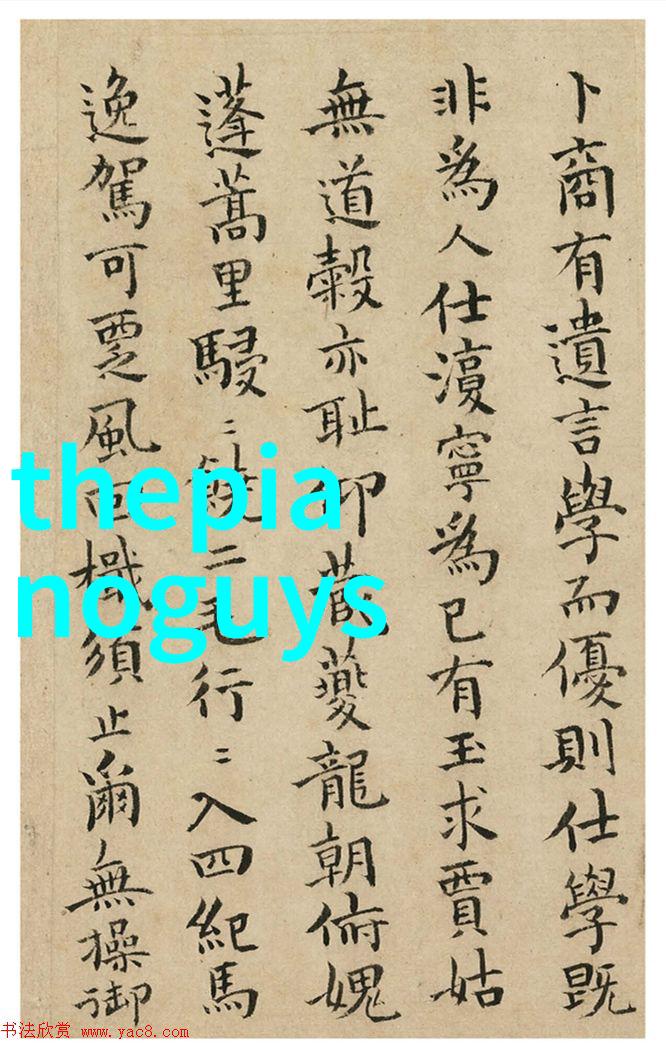 卜商有遺言學而優則仕學既
非為人仕寧為已有玉求賈姑
無道榖亦耻仰夔龍朝俯媿
蓬蒿里駸二二毛行二入四紀馬
逸駕可覂風叵檝須止爾無操御
thepia
noguys
书法欣赏 www.yac8.com